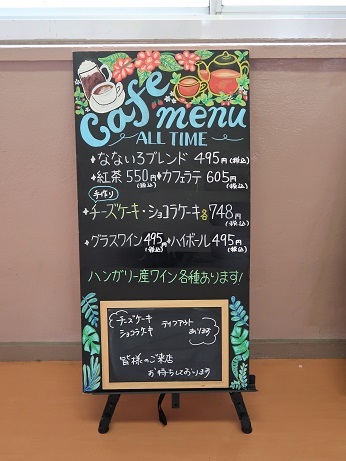 Cafe menu
ALL TIME
なないろブレンド 495円(税込)
紅茶 550円(税込) カフェラテ 605円(税込)
手作り
チーズケーキ・ショコラケーキ各748円(税込)
グラスワイン 495円(税込) ハイボール 495円(税込)
ハンガリー産ワイン各種あります!
チーズケーキ
ショコラケーキ
テイクアウト
あります
皆様のご来店
お待ちしております